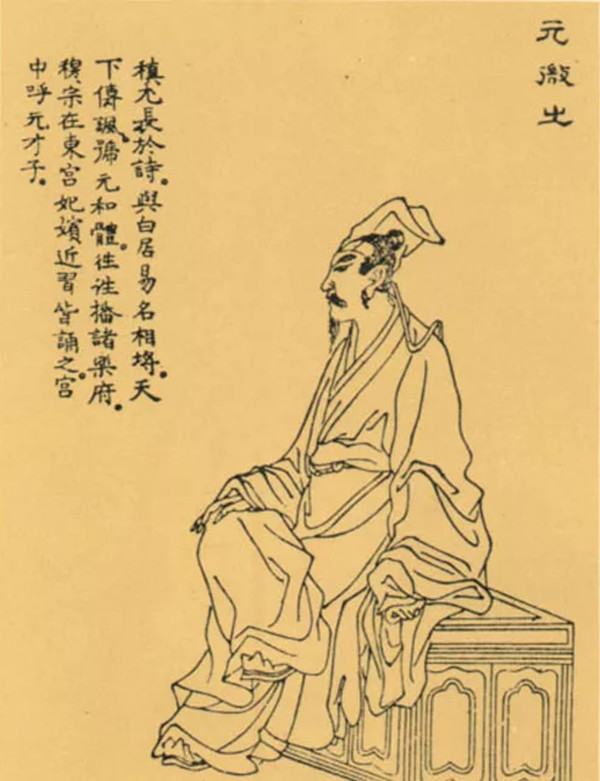 元微之
稹尤長於詩。與白居易名相埒。天
下傳諷、號元和體。往往播諸樂府。
穆宗在東宮妃嬪近習皆誦之。宮
中呼元才子。